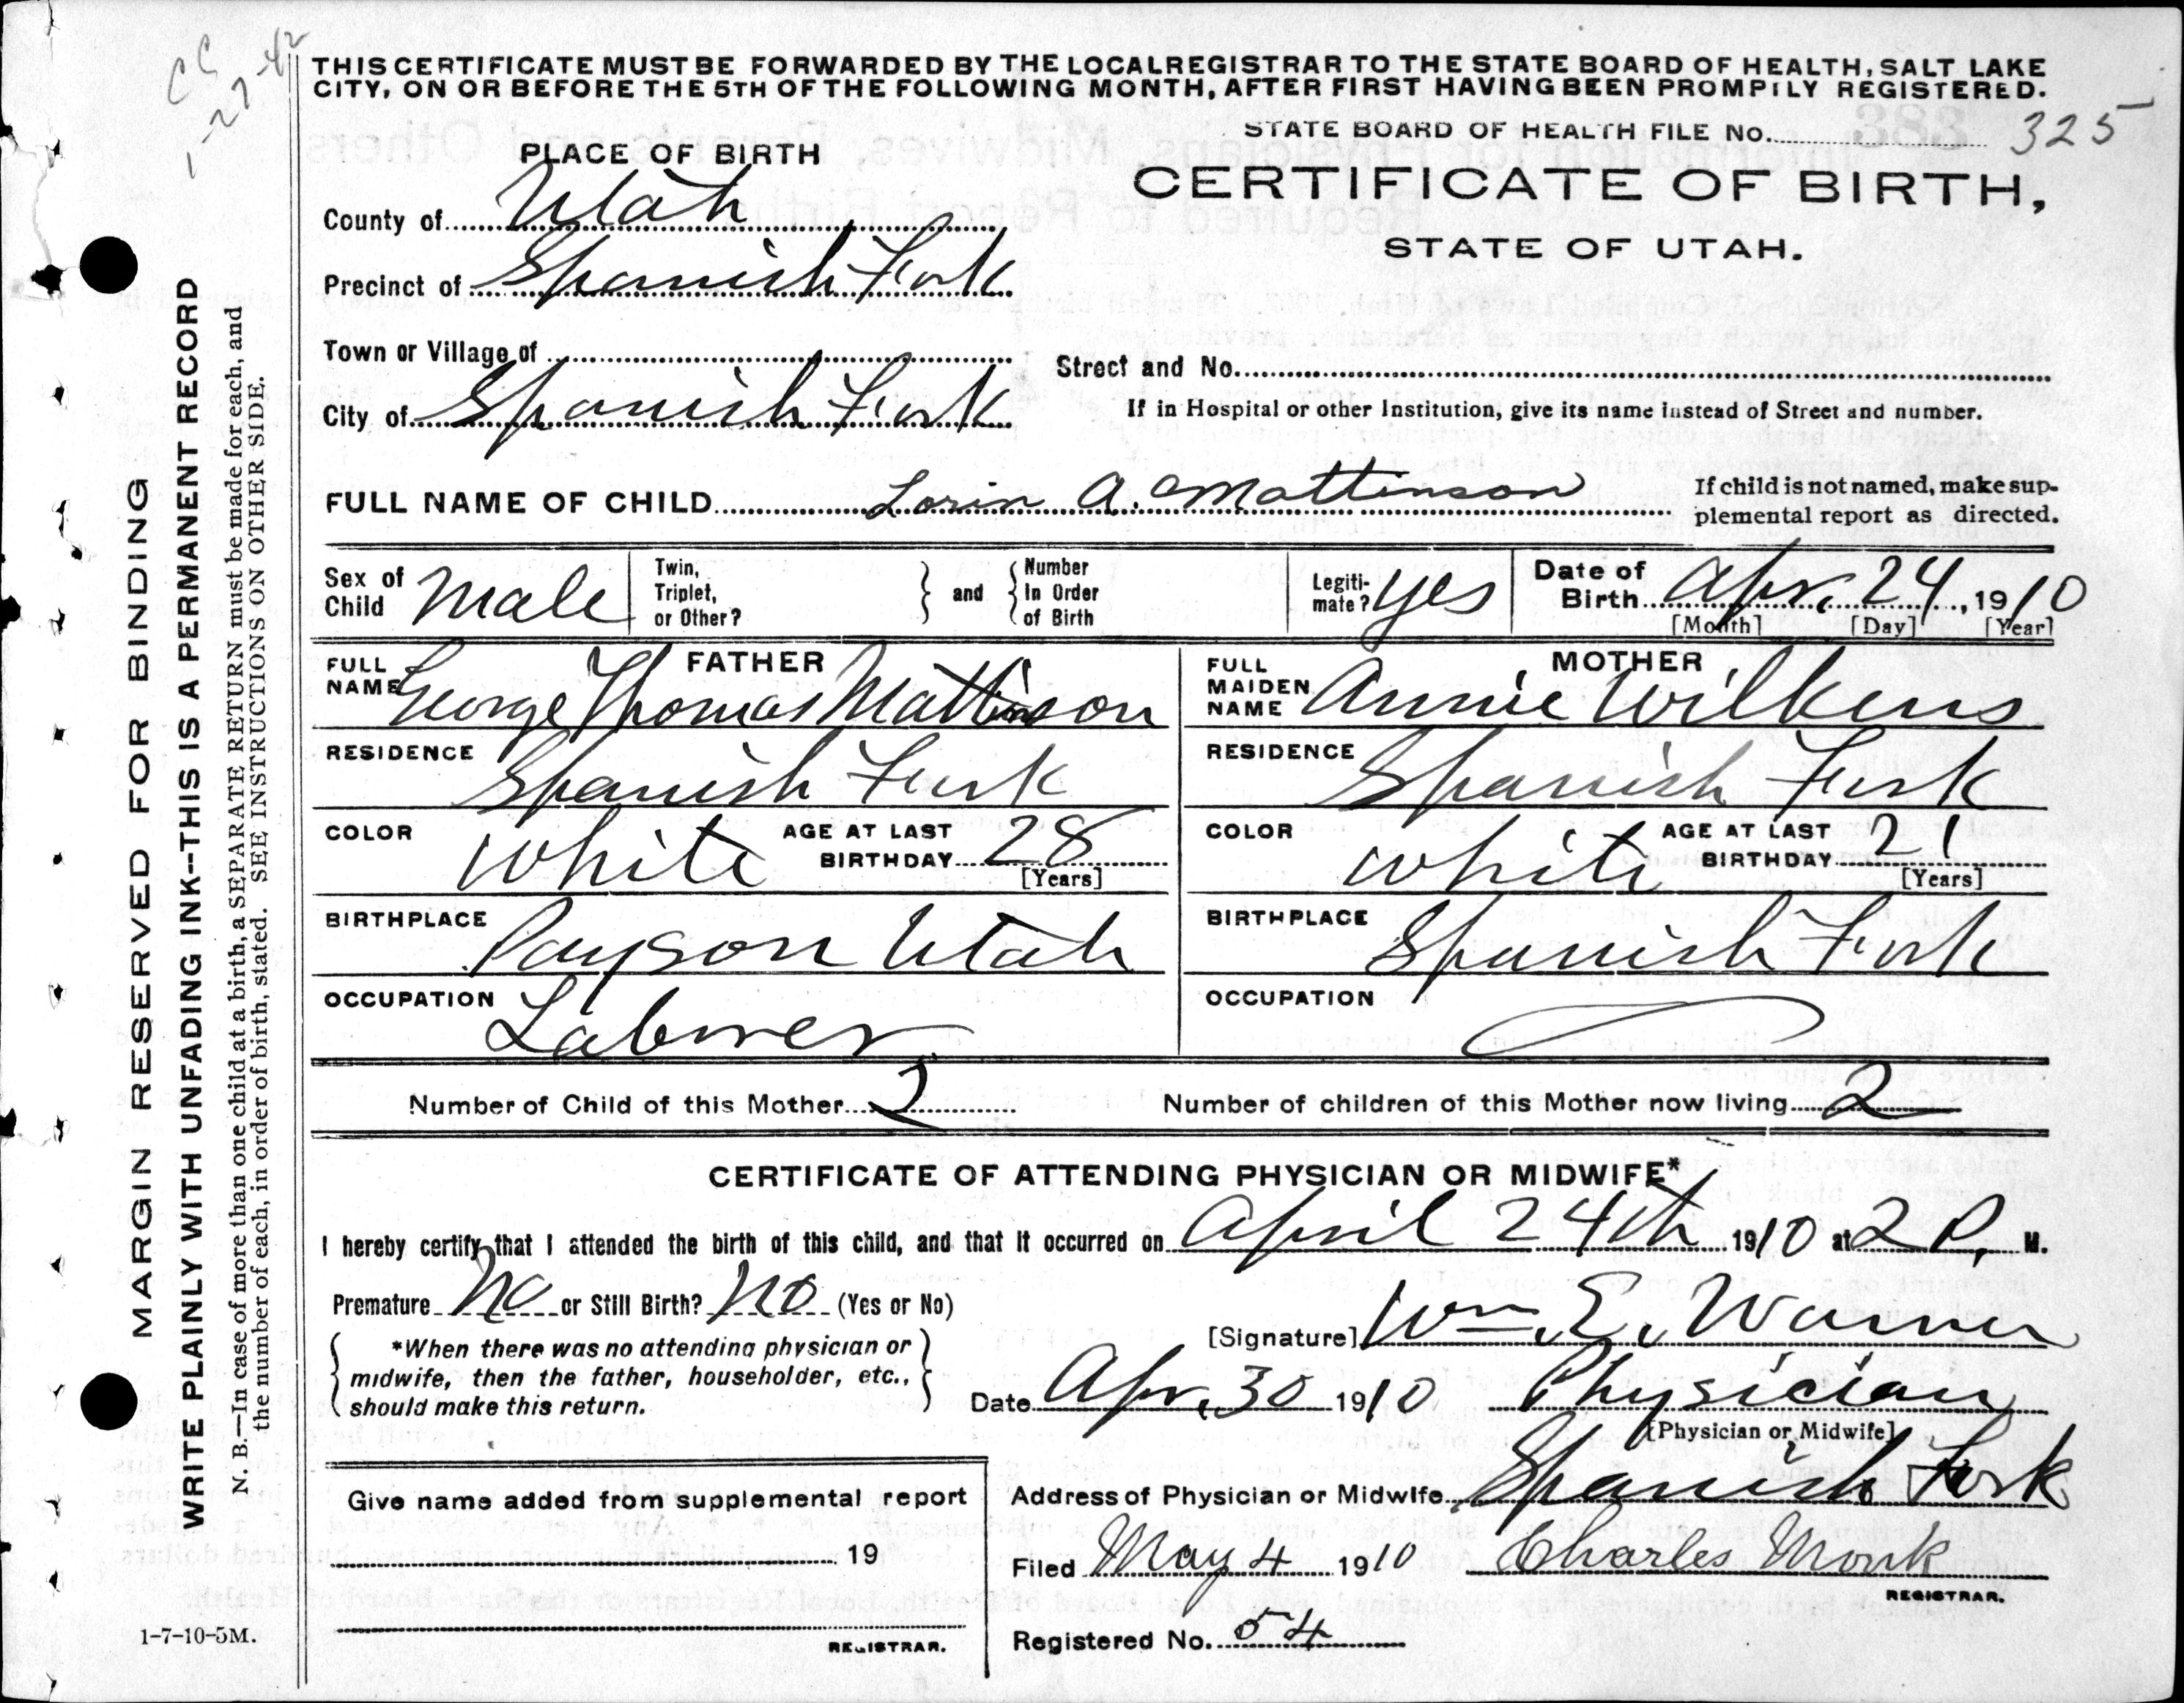 CC
1-27-42
THIS CERTIFICATE MUST BE FORWARDED BY THE LOCAL REGISTRAR TO THE STATE BOARD OF HEALTH, SALT LAKE
CITY, ON OR BEFORE THE 5TH OF THE FOLLOWING MONTH, AFTER FIRST HAVING BEEN PROMPTLY REGISTERED.
STATE BOARD OF HEALTH FILE No. 383 325
PLACE OF BIRTH
CERTIFICATE OF BIRTH,
STATE OF UTAH.
County of Utah
Precinct of Spanish Fork
Town or Village of
Street and No.
City of Spanish Fork
If in Hospital or other Institution, give its name instead of Street and number.
FULL NAME OF CHILD Lorin A. Mattinson
If child is not named, make sup-
plemental report as directed.
Sex of Child Male
Twin, Triplet, or Other?
and
Number In Order of Birth
Legiti-mate? yes
Date of Birth Apr. 24, 1910
[Month] [Day] [Year]
FATHER
FULL NAME George Thomas Mattinson
MOTHER
FULL MAIDEN NAME Annie Wilkens
RESIDENCE Spanish Fork
RESIDENCE Spanish Fork
COLOR White AGE AT LAST BIRTHDAY 28 [Years]
COLOR White AGE AT LAST BIRTHDAY 21 [Years]
BIRTHPLACE Payson Utah
BIRTHPLACE Spanish Fork
OCCUPATION Laborer
OCCUPATION
Number of Child of this Mother 2
Number of children of this Mother now living 2
CERTIFICATE OF ATTENDING PHYSICIAN OR MIDWIFE*
I hereby certify that I attended the birth of this child, and that it occurred on April 24th 1910 at 2 P. M.
Premature No or Still Birth? No (Yes or No)
[Signature] Wm. E. Warner
*When there was no attending physician or
midwife, then the father, householder, etc.,
should make this return.
Date Apr. 30 1910 Physician
[Physician or Midwife]
Give name added from supplemental report
19
REGISTRAR.
Address of Physician or Midwife Spanish Fork
Filed May 4 1910 Charles Monk
REGISTRAR.
Registered No. 54
1-7-10-5M.
MARGIN RESERVED FOR BINDING
WRITE PLAINLY WITH UNFADING INK--THIS IS A PERMANENT RECORD
N. B.—In case of more than one child at a birth, a SEPARATE RETURN must be made for each, and
the number of each, in order of birth, stated. SEE INSTRUCTIONS ON OTHER SIDE.